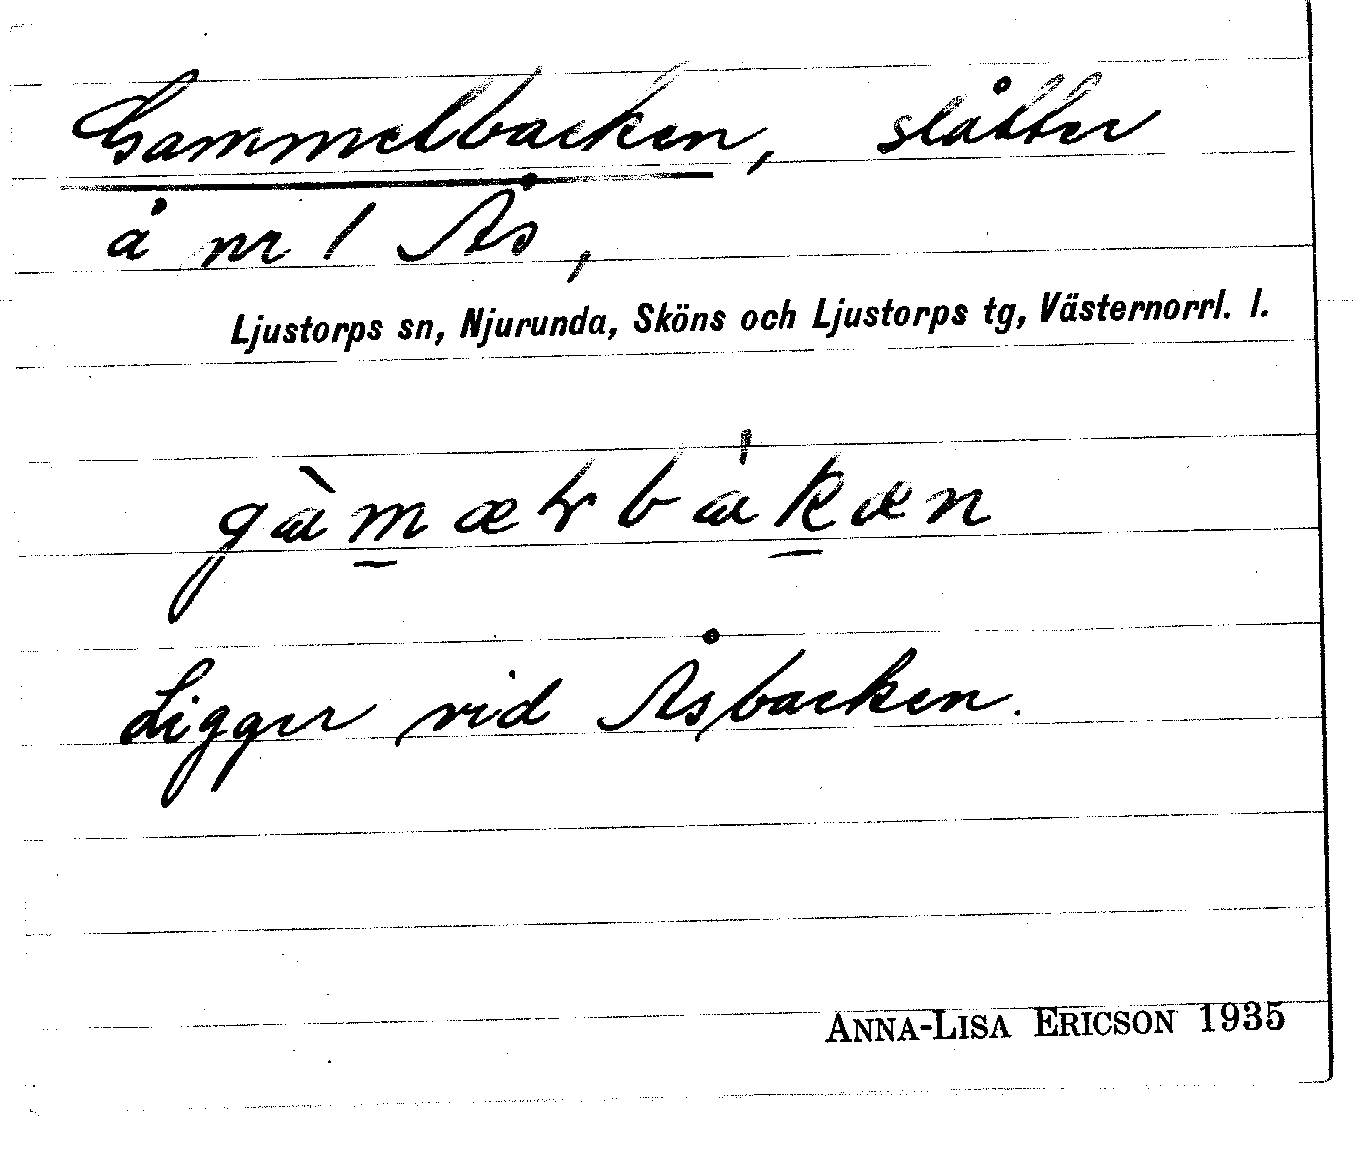 Gammelbacken, slåtter
å nr 1 Ås,
Ljustorps sn, Njurunda, Sköns och Ljustorps tg, Västernorrl. l.
gàmæɽbákæn
Ligger vid Åsbacken.
ANNA-LISA ERICSON 1935